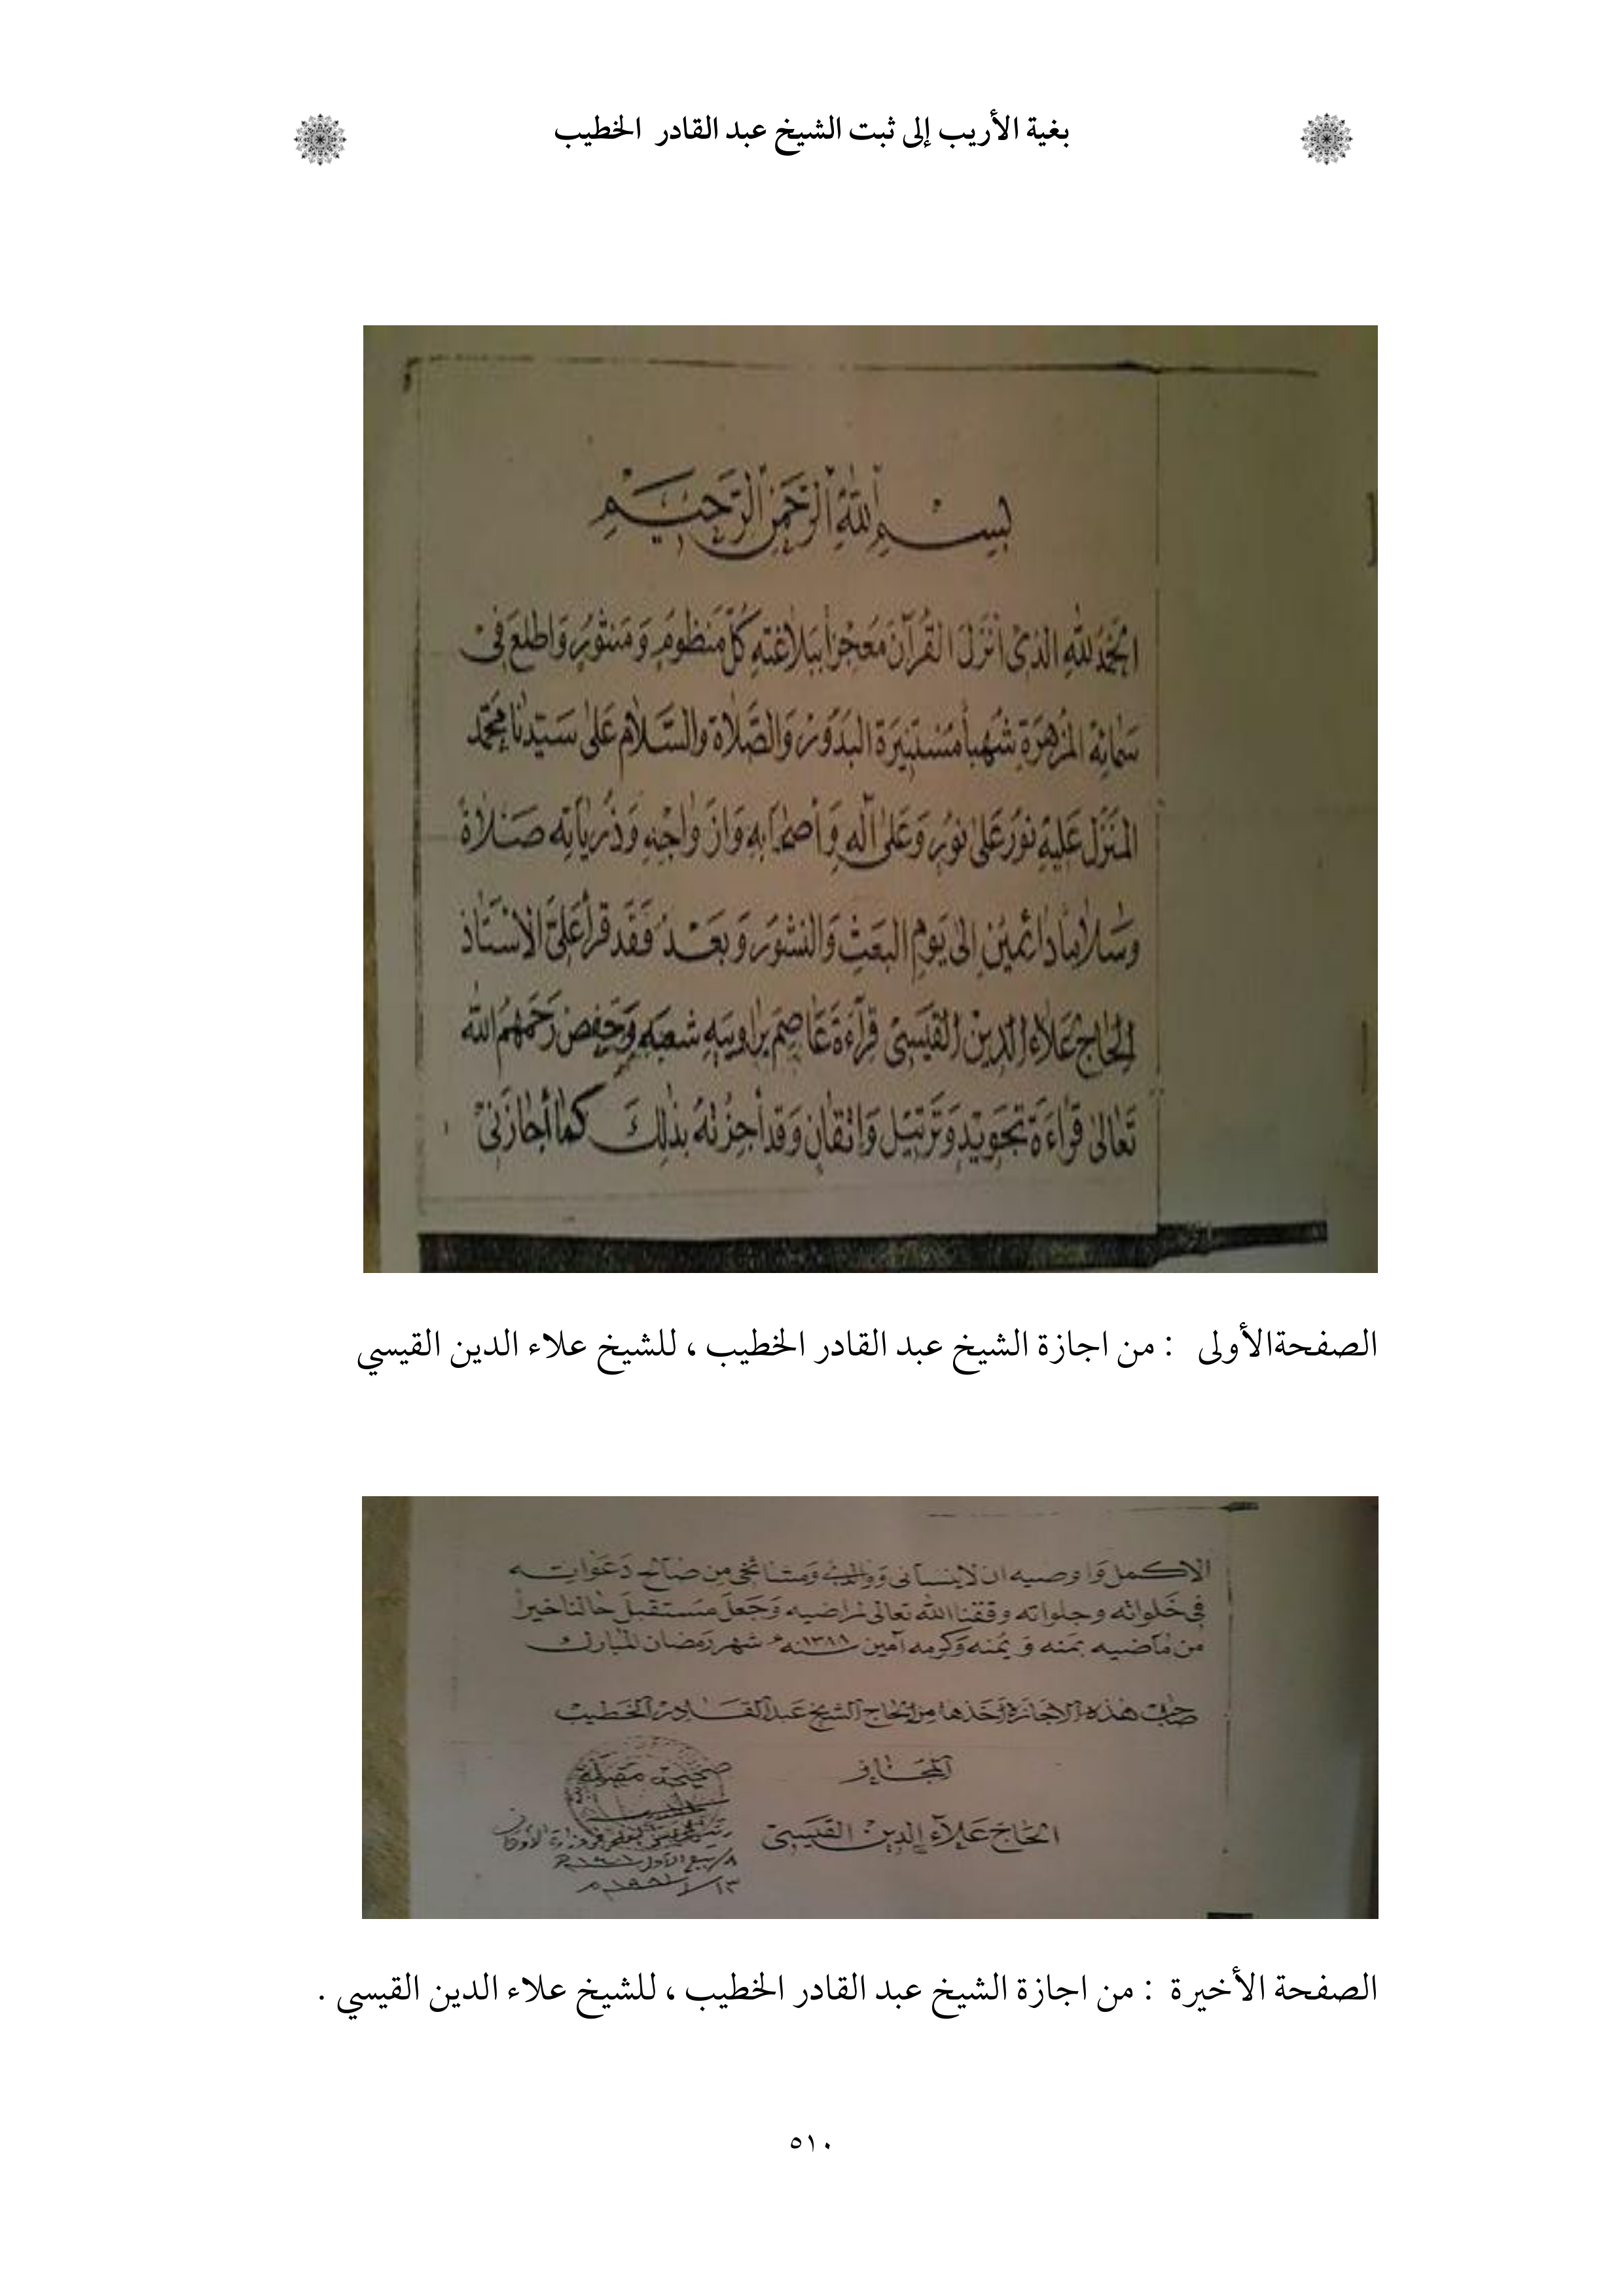 بغية الأريب إلى ثبت الشيخ عبد القادر الخطيب
بسم الله الرحمن الرحيم
الحمد لله الذي انزل القرآن معجزا ببلاغته كل منظوم ومنثور واطلع في
سمائه المزهرة شهبا مستنيرة البدور والصلاة والسلام على سيدنا محمد
المنزل عليه نور على نور وعلى آله وأصحابه وازواجه وذرياته صلاة
وسلاما دائمين الى يوم البعث والنشور وبعد فقد قرأ علي الاستاذ
الحاج علاء الدين القيسي قرآءة عاصم براوييه شعبه وحفص رحمهم الله
تعالى قراءة تجويد وترتيل واتقان وقد أجزته بذلك كما أجازني
الصفحةالأولى : من اجازة الشيخ عبد القادر الخطيب ، للشيخ علاء الدين القيسي
الاكمل واوصيه ان لاينساني ووالدي ومشائخي من صالح دعواته
في خلواته وجلواته وفقنا الله تعالى لمراضيه وجعل مستقبل حالنا خيرا
من ماضيه بمنه ويمنه وكرمه آمين سنه ١٣٨١ه شهر رمضان المبارك
صاحب هذه الاجازة أخذها من الحاج الشيخ عبد القادر الخطيب
المجاز
الحاج علآء الدين القيسي
صحيحة مصدقة
٨/ربيع الاول/١٤٠١
الصفحة الأخيرة : من اجازة الشيخ عبد القادر الخطيب ، للشيخ علاء الدين القيسي .
٥١٠